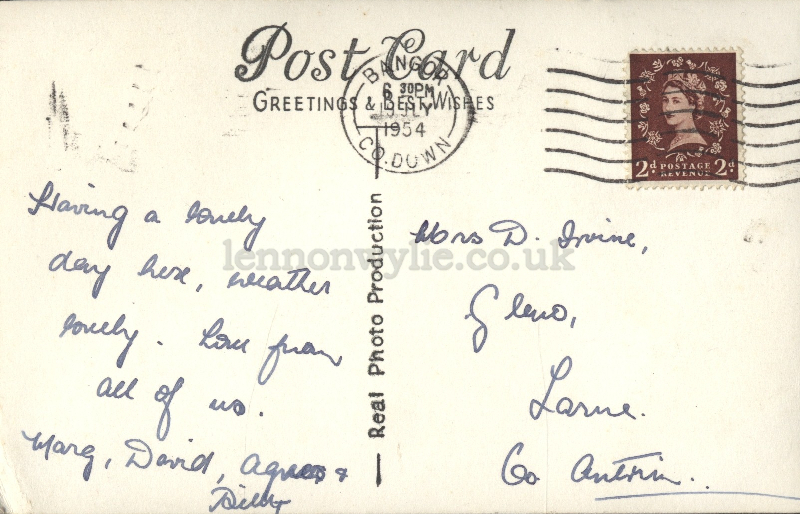 Post Card
GREETINGS & BEST WISHES
BANGOR
6 30PM
JLY
1954
CO. DOWN
2d POSTAGE 2d
REVENUE
Having a lovely
day here, weather
lovely. Love from
all of us.
Marg, David, Agnes &
Billy
Real Photo Production
Mrs D. Irvine,
Gleno,
Larne.
Co Antrim.
lennonwylie.co.uk